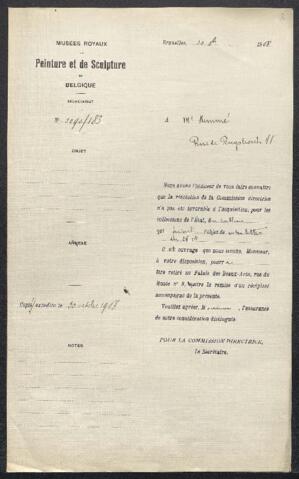 MUSÉES ROYAUX
DE
Peinture et de Sculpture
DE
BELGIQUE
SECRÉTARIAT
N°
OBJET
ANNEXE
Copie expédiée le 30 octobre 1908
NOTES
Bruxelles, 30 8bre 1908
A Mr
Rue de
Nous avons l'honneur de vous faire connaître
que la résolution de la Commission directrice
n'a pas été favorable à l'acquisition, pour les
collections de l'État, du tableau
qui faisait l'objet de votre lettre
du 26 ct
Cet ouvrage que nous tenons, Monsieur,
à votre disposition, pourra
être retiré au Palais des Beaux-Arts, rue du
Musée n° 9, contre la remise d'un récépissé
accompagné de la présente.
Veuillez agréer, M, l'assurance
de notre considération distinguée
POUR LA COMMISSION DIRECTRICE,
le Secrétaire.